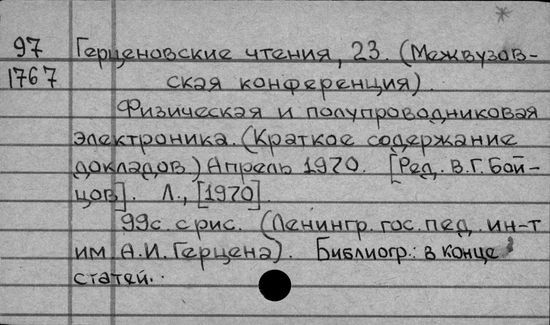 97 Герценовские чтения, 23. (Межвузов-
1767 ская конференция).
Физическая и полупроводниковая
электроника. (Краткое содержание
докладов.) Апрель 1970. [Ред. В.Г. Бой-
цов]. Л., [1970].
99с. с рис. (Ленингр. гос. пед. ин-т
им А.И. Герцена). Библиогр.: в конце
статей.